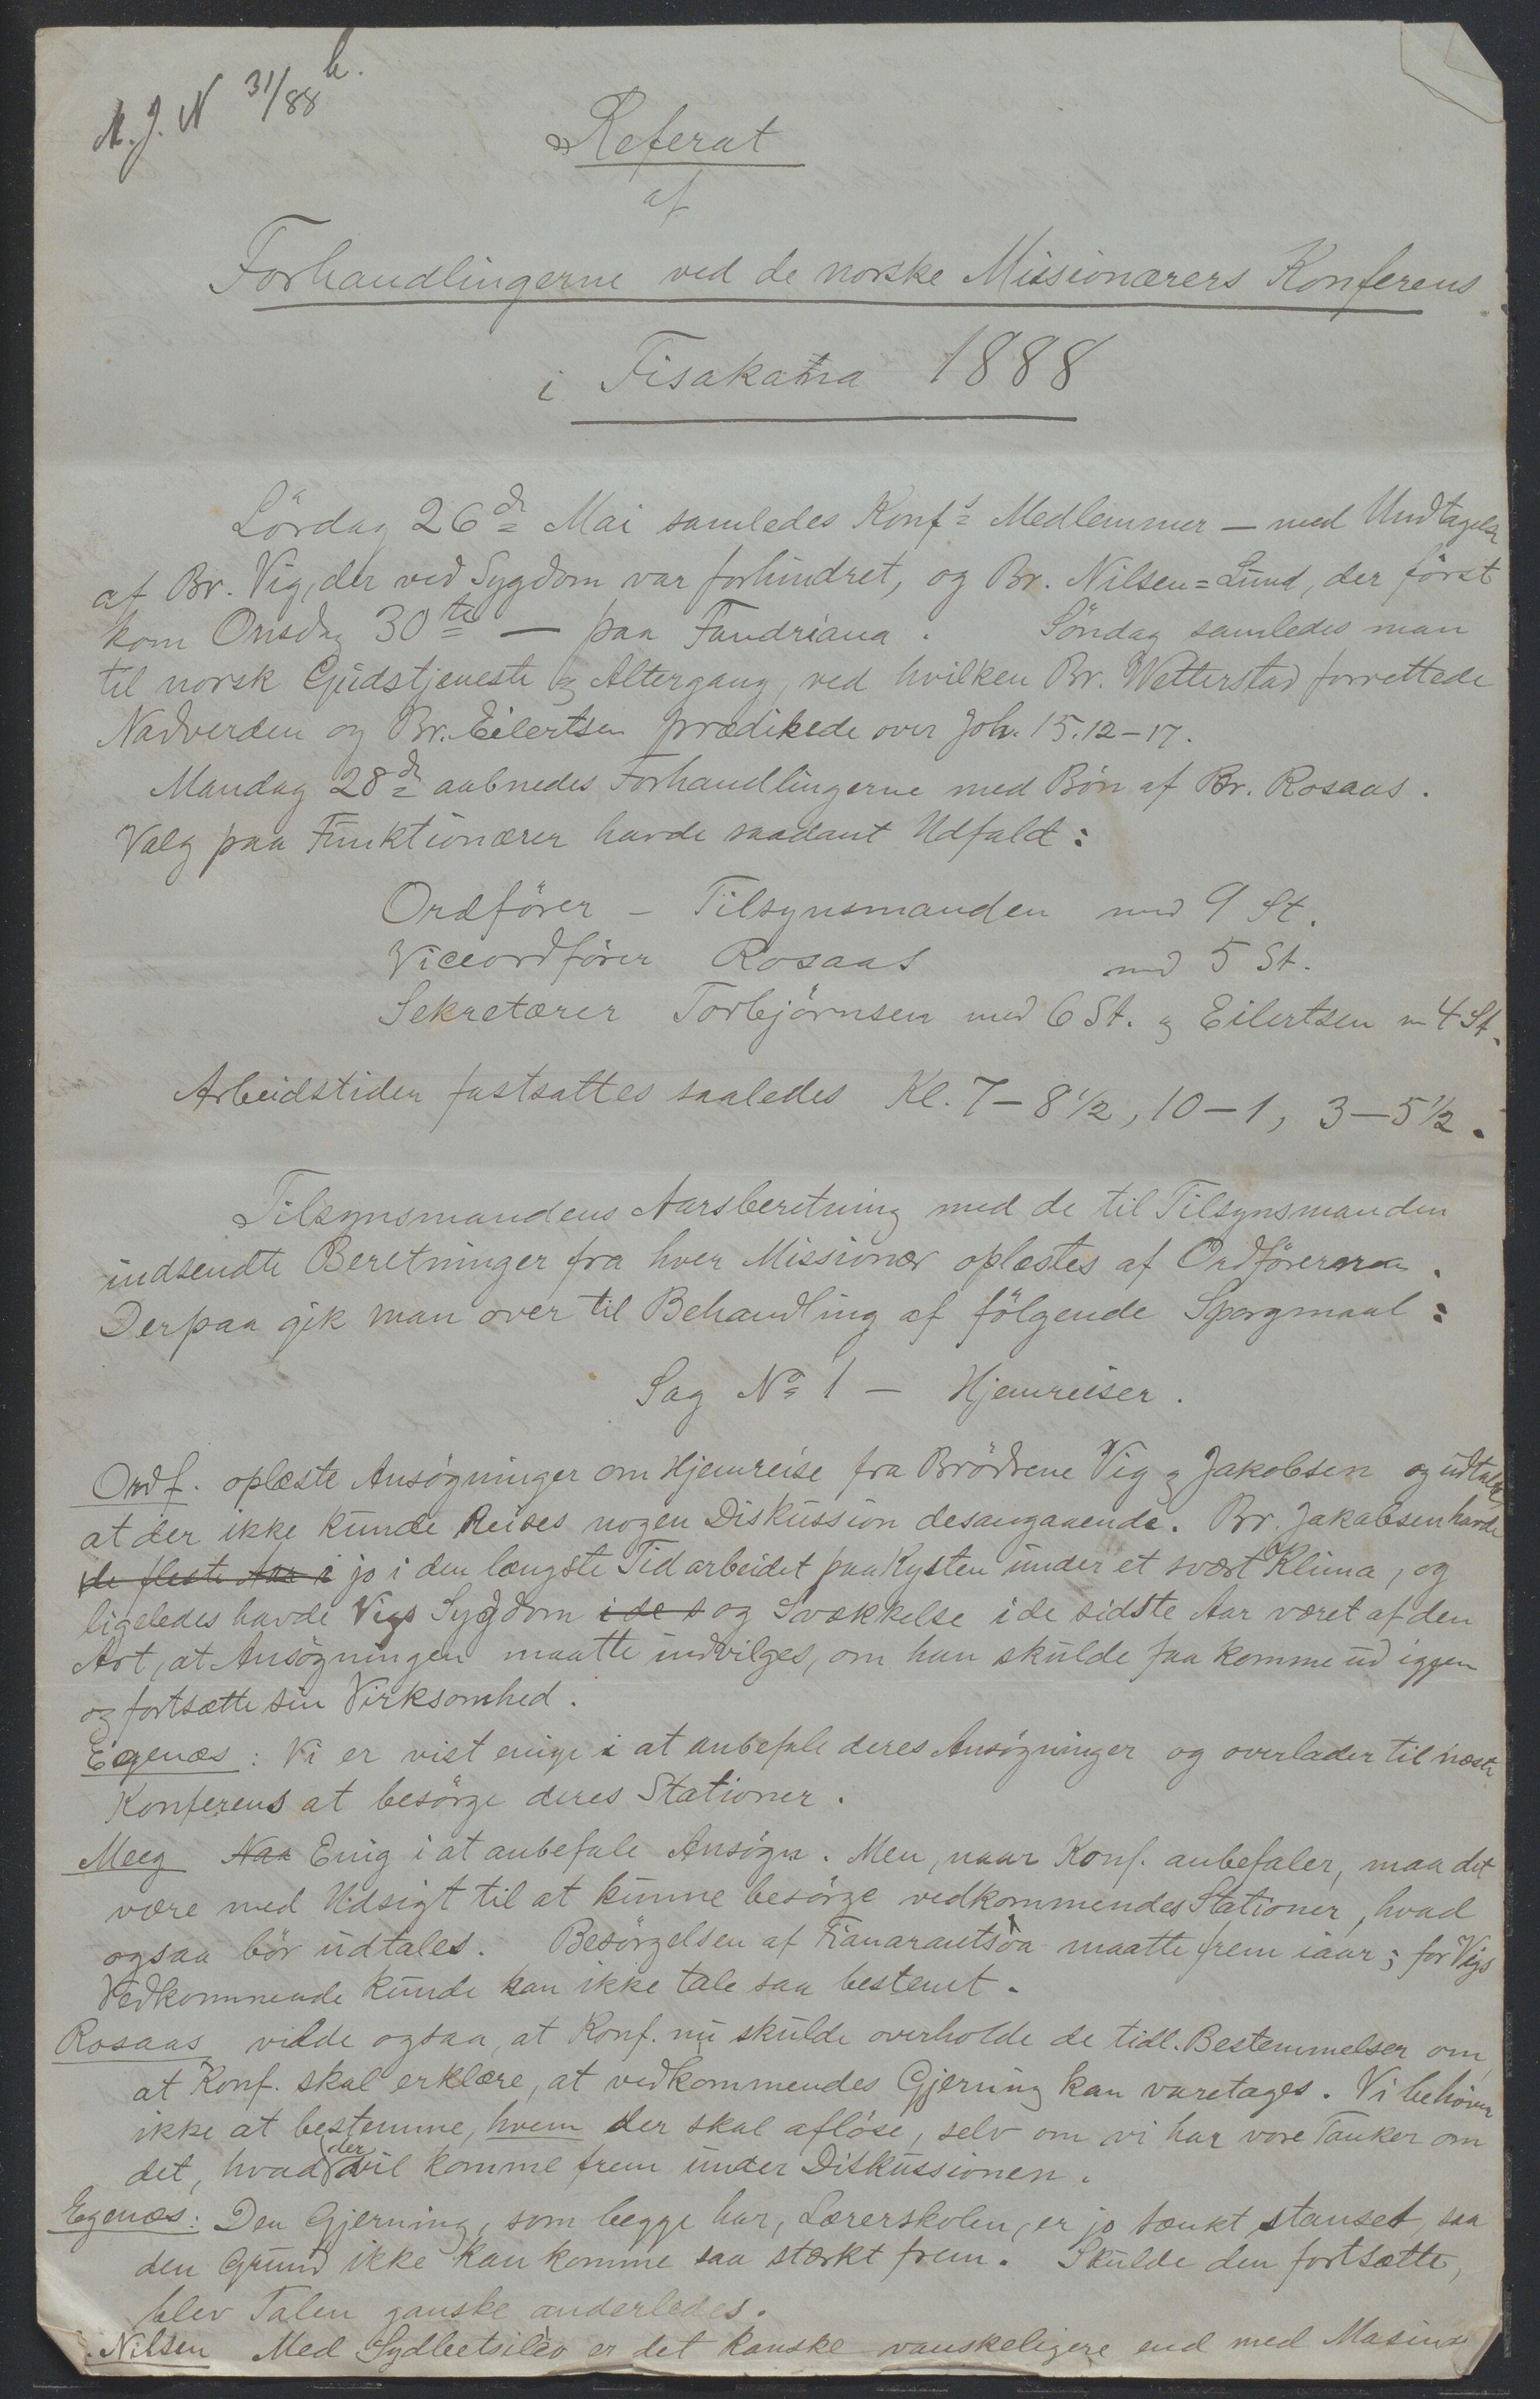 M. J. N 31/88 h.
Referat
af
Forhandlingerne ved de norske Missionærers Konferens
i Fisakana 1888
Lördag 26de Mai samledes Konfs Medlemmer — med Undtagelse
af Br. Vig, der ved Sygdom var forhindret, og Br. Nilsen=Lund, der först
kom Onsdag 30te — paa Fandriana. Söndag samledes man
til norsk Gudstjeneste og Altergang, ved hvilken Br. Wetterstad forrettede
Nadverden og Br. Eilertsen prædikede over Joh. 15.12-17.
Mandag 28de aabnedes Forhandlingerne med Bön af Br. Rosaas.
Valg paa Funktionærer havde saadant Udfald:
Ordförer – Tilsynsmanden med 9 St.
Viceordförer Rosaas med 5 St.
Sekretærer Torbjörnsen med 6 St. og Eilertsen m 4 St.
Arbeidstiden fastsattes saaledes Kl. 7–8 1/2, 10–1, 3–5 1/2.
Tilsynsmandens Aarsberetning med de til Tilsynsmanden
indsendte Beretninger fra hver Missionær oplæstes af Ordföreren.
Derpaa gik man over til Behandling af fölgende Spørgmaal:
Sag No 1 – Hjemreiser.
Ordf. oplæste Ansögninger om Hjemreise fra Brödrene Vig og Jakobsen og udtalte
at der ikke kunde Reises nogen Diskussion desangaaende. Br. Jakobsen havde
de fleste Aar i jo i den længste Tid arbeidet paa Kysten under et svært Klima, og
ligeledes havde Vigs Sygdom i de s og Svækkelse i de sidste Aar været af den
Art, at Ansögningen maatte indvilges, om han skulde faa komme ud igjen
og fortsætte sin Virksomhed.
Egenæs: Vi er vist enige i at anbefale deres Ansögninger og overlader til næste
Konferens at besörge deres Stationer.
Meeg Naa Enig i at anbefale Ansögn. Men, naar Konf. anbefaler, maa det
være med Udsigt til at kunne besörge vedkommendes Stationer, hvad
ogsaa bör udtales. Besörgelsen af Fianarantsòa maatte frem iaar; for Vigs
Vedkommende kunde kan ikke tale saa bestemt.
Rosaas vilde ogsaa, at Konf. nu skulde overholde de tidl. Bestemmelser om,
at Konf. skal erklære, at vedkommendes Gjerning kan varetages. Vi behöver
ikke at bestemme, hvem der skal aflöse, selv om vi har vore Tanker om
det, hvad der vil komme frem under Diskussionen.
Egenæs: Den Gjerning, som begge har, Lærerskolen, er jo tænkt stanset, saa
den Grund ikke kan komme saa stærkt frem. Skulde den fortsætte,
blev Talen ganske anderledes.
Nilsen Med Sydbetsileo er det kanske vanskeligere end med Masina